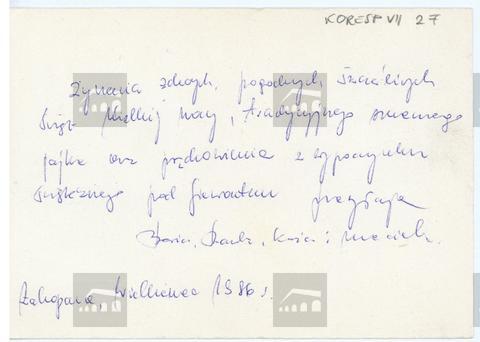 KORESP VII 27
Życzenia zdrowych, pogodnych, szczęśliwych
Świąt Wielkiej Nocy, tradycyjnego smacznego
jajka oraz pozdrowienia z wypoczynku
świątecznego pod Giewontem przesyłają
Basia, Kasia i Maciek.
Zakopane, Wielkanoc 1986 r.